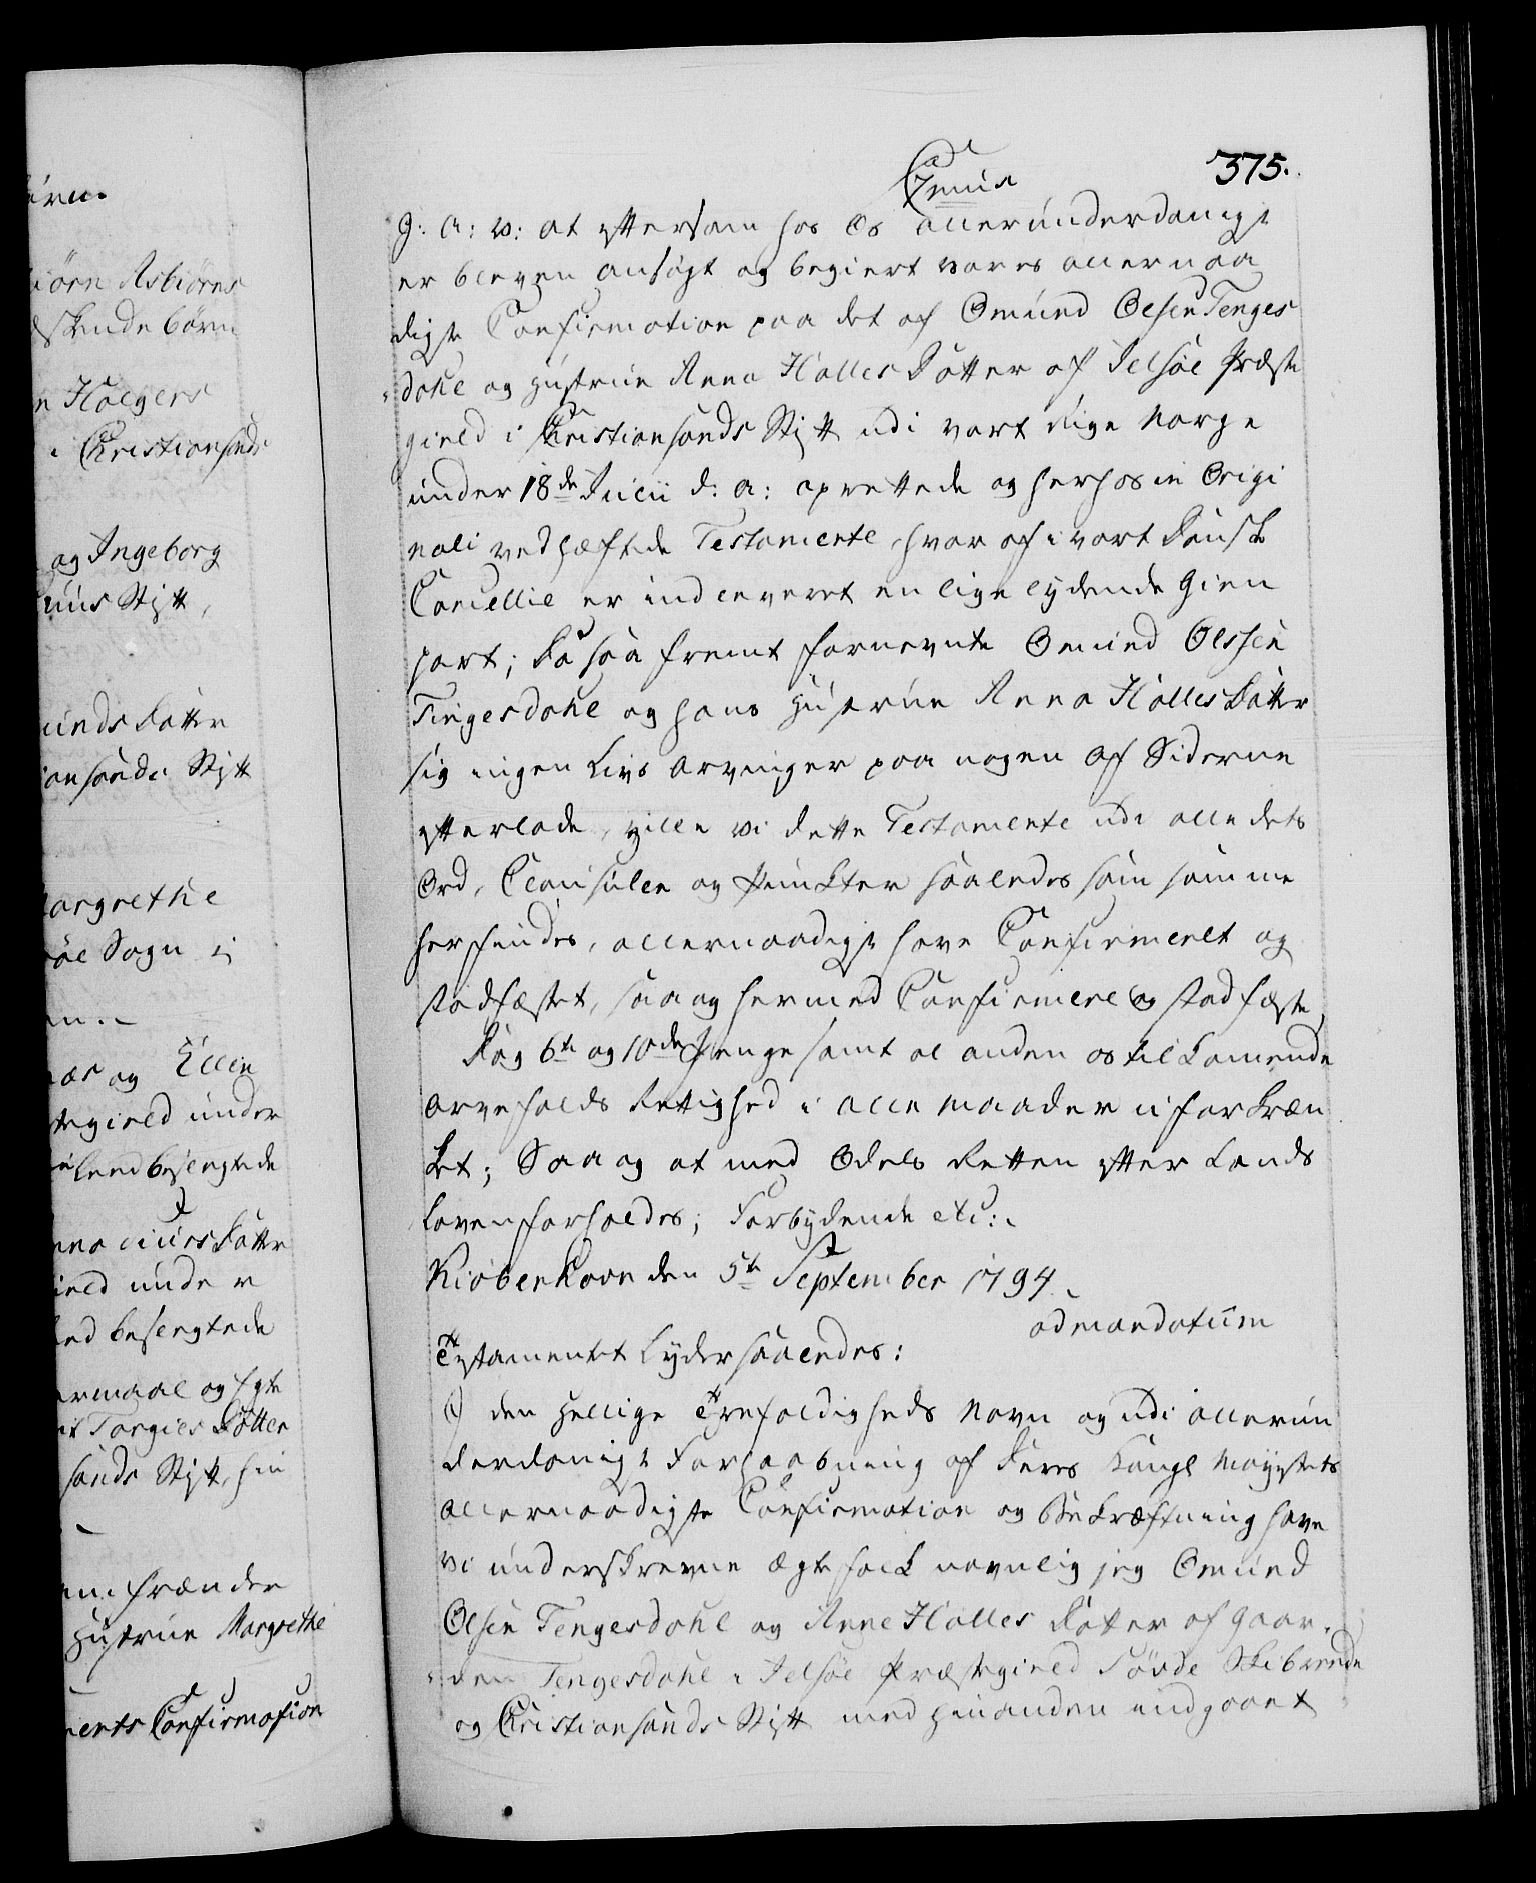 375.
G: A: V: at eftersom hos Os allerunderdanigst
er bleven ansøgt og begiert vores allernaa
digste Confirmation paa det af Omund Olsen Tenges
dahl og Hustrue Anna HallesDatter af Jelsøe Præste
gield i Christiansands Stift udi vort Rige Norge
under 18de Julii d: a: oprettede og herhos in Origi
nali vedhæftede Testamente, hvor af i vort Danske
Cancellie er indleveret en lige lydende Gien
part; Da saa fremt fornevnte Omund Olssen
Tengesdahl og hans Hustrue Anna HallesDatter
sig ingen Livs Arvinger paa nogen af Siderne
efterlade, ville vi dette Testamente udi alle dets
Ord, Clausuler og Puncter saaledes som samme
herfindes, allernaadigst have Confirmeret og
stadfæstet, saa og hermed Confirmere og stadfæste
Dog 6te og 10de Penge samt al anden os tilkommende
Arvefalds Rettighed i alle Maader uforkræn
ket; Saa og at med Odels Retten efter Lands
Loven forholdes; Forbydende etc:.
Kiøbenhavn den 5te September 1794.
ad mandatum
Testamentet Lyder saaledes:
I den Hellige Trefoldigheds Navn og udi allerun
derdanigst Forhaabning af Deres Kongl Mayestets
Allernaadigste Confirmation og Bekræftning have
vi underskrevne Ægtefolk navnlig jeg Omund
Olsen Tengesdahl og Anne Halles Datter af Gaar,
den Tengesdahl i Jelsøe Præstegield Søvde Skibrede
og Christiansands Stift med hinanden indgaaet
iørn Asbiørns
skende børn
n Holgers
i Christiansands
og Ingeborg
uus Stift,
unds Datter
iansands Stift
argrethe
øe Sogn i
og Ellen
gield under
besegtede
Datter
ield under
besegtede
ermaal og Egte
Torgiers Datter
sands Stift, hin
frænder
Hustrue Margrethe
ments Confirmation